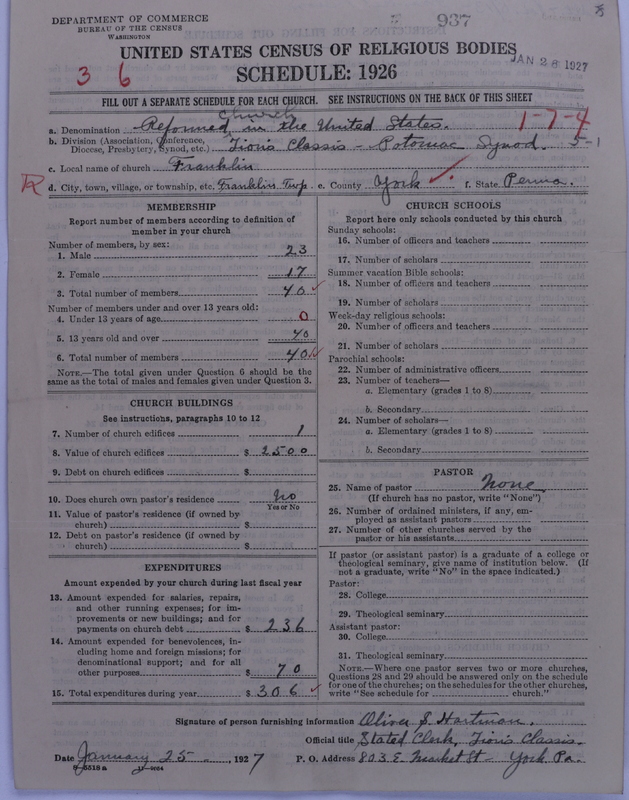 DEPARTMENT OF COMMERCE
BUREAU OF THE CENSUS
WASHINGTON
937
UNITED STATES CENSUS OF RELIGIOUS BODIES
JAN 28 1927
3 6
SCHEDULE: 1926
FILL OUT A SEPARATE SCHEDULE FOR EACH CHURCH. SEE INSTRUCTIONS ON THE BACK OF THIS SHEET
1-7-4
a. Denomination Reformed Church in the United States.
b. Division (Association, Conference, Diocese, Presbytery, Synod, etc.) Zion's Classis - Potomac Synod. 5-1
c. Local name of church Franklin
R d. City, town, village, or township, etc. Franklin Twp e. County York f. State Penna.
MEMBERSHIP
Report number of members according to definition of
member in your church
Number of members, by sex:
1. Male 23
2. Female 17
3. Total number of members 40
Number of members under and over 13 years old:
4. Under 13 years of age 0
5. 13 years old and over 40
6. Total number of members 40
NOTE.—The total given under Question 6 should be
same as the total of males and females given under Question 3.
CHURCH BUILDINGS
See instructions, paragraphs 10 to 12
7. Number of church edifices 1
8. Value of church edifices $ 2500
9. Debt on church edifices $
10. Does church own pastor's residence No
Yes or No
11. Value of pastor's residence (if owned by
church) $
12. Debt on pastor's residence (if owned by
church) $
EXPENDITURES
Amount expended by your church during last fiscal year
13. Amount expended for salaries, repairs,
and other running expenses; for im-
provements or new buildings; and for
payments on church debt $ 236
14. Amount expended for benevolences, in-
cluding home and foreign missions; for
denominational support; and for all
other purposes $ 70
15. Total expenditures during year $ 306
CHURCH SCHOOLS
Report here only schools conducted by this church
Sunday schools:
16. Number of officers and teachers
17. Number of scholars
Summer vacation Bible schools:
18. Number of officers and teachers
19. Number of scholars
Week-day religious schools:
20. Number of officers and teachers
21. Number of scholars
Parochial schools:
22. Number of administrative officers
23. Number of teachers—
a. Elementary (grades 1 to 8)
b. Secondary
24. Number of scholars—
a. Elementary (grades 1 to 8)
b. Secondary
PASTOR
25. Name of pastor None
(If church has no pastor, write "None")
26. Number of ordained ministers, if any, em-
ployed as assistant pastors
27. Number of other churches served by the
pastor or his assistants
If pastor (or assistant pastor) is a graduate of a college or
theological seminary, give name of institution below. (If
not a graduate, write "No" in the space indicated.)
Pastor:
28. College
29. Theological seminary
Assistant pastor:
30. College
31. Theological seminary
NOTE.—Where one pastor serves two or more churches,
Questions 28 and 29 should be answered only on the schedule
for one of the churches; on the schedules for the other churches,
write "See schedule for church."
Signature of person furnishing information Oliver S. Hartman.
Official title Stated Clerk, Zion's Classis.
Date January 25, 1927 P. O. Address 803 E Market St - York Pa.